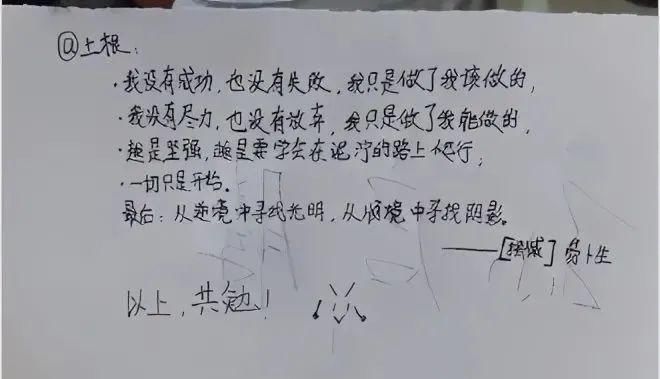 @土根：
·我没有成功，也没有失败，我只是做了我该做的，
·我没有尽力，也没有放弃，我只是做了我能做的，
·越是坚强，越是要学会在泥泞的路上爬行；
·一切只是开始。
最后：从逆境中寻找光明，从顺境中寻找阴影。
——[挪威] 易卜生
以上，共勉！